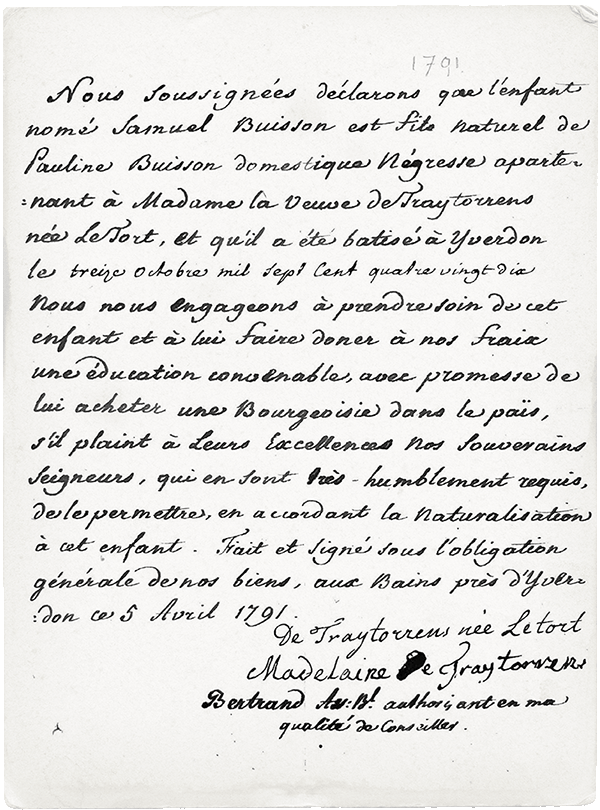 1791.
Nous soussignées déclarons que l'enfant
nomé Samuel Buisson est fils naturel de
Pauline Buisson domestique Négresse aparte=
=nant à Madame la veuve de Traytorrens
née LeTort, et qu'il a été batisé à Yverdon
le treize octobre mil sept Cent quatre vingt dix
Nous nous engageons à prendre soin de cet
enfant et à lui faire doner à nos fraix
une éducation convenable, avec promesse de
lui acheter une Bourgeoisie dans le païs,
s'il plaint à Leurs Excellences Nos Souverains
Seigneurs, qui en sont très-humblement requis,
de le permettre, en accordant la Naturalisation
à cet enfant. Fait et signé sous l'obligation
générale de nos biens, aux Bains près d'Yver=
=don ce 5 Avril 1791.
De Traytorrens née Letort
Madelaine De Traytorrens
Bertrand authorisant en ma
qualité de Conseiller.